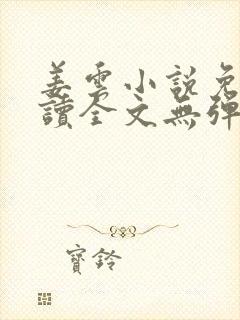 姜雲小說免
讀全文無彈
寶鈴